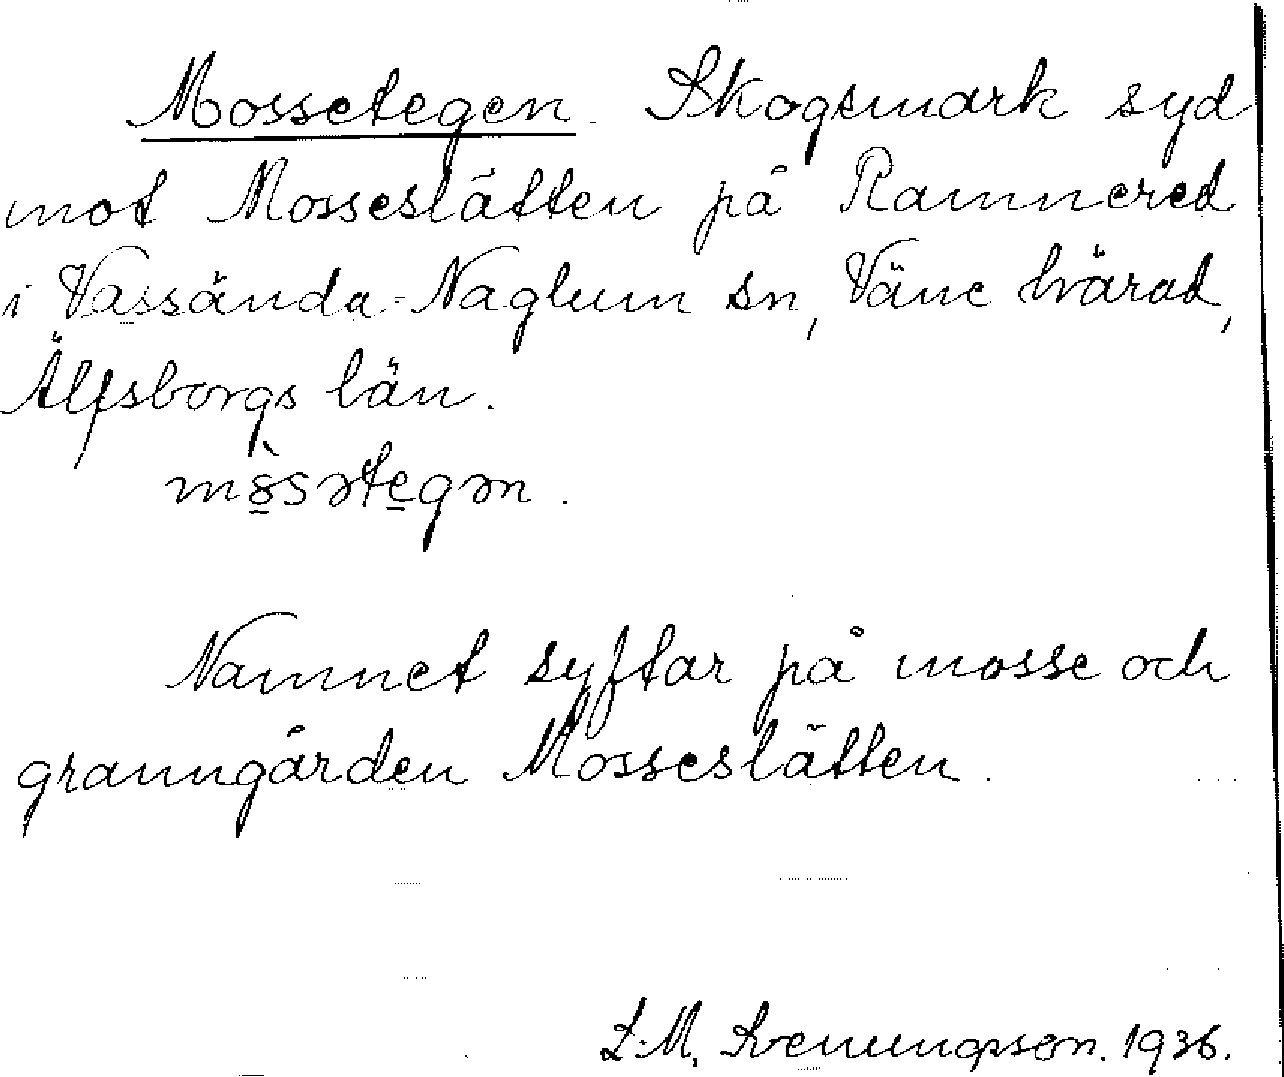 Mossetegen. Skogsmark syd
mot Mosseslätten på Ramnered
i Vassända-Naglum sn, Väne härad,
Älfsborgs län.
mo̱̊̀səte̱gən.
Namnet syftar på mosse och
granngården Mosseslätten.
L.M. Svenungsson. 1936.